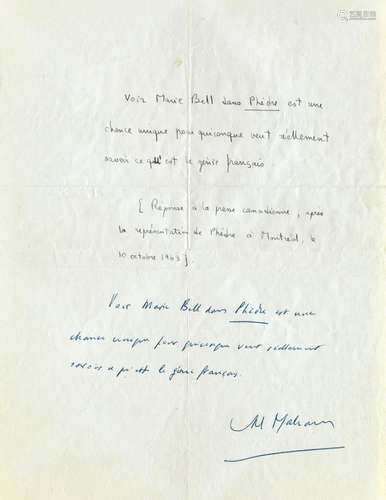 Voir Marie Bell dans Phèdre est une
chance unique pour quiconque veut réellement
savoir ce qu'est le génie français.
[ Réponse à la presse canadienne, après
la représentation de Phèdre à Montréal, le
10 octobre 1963 ].
Voir Marie Bell dans Phèdre est une
chance unique pour quiconque veut réellement
savoir ce qu'est le génie français.